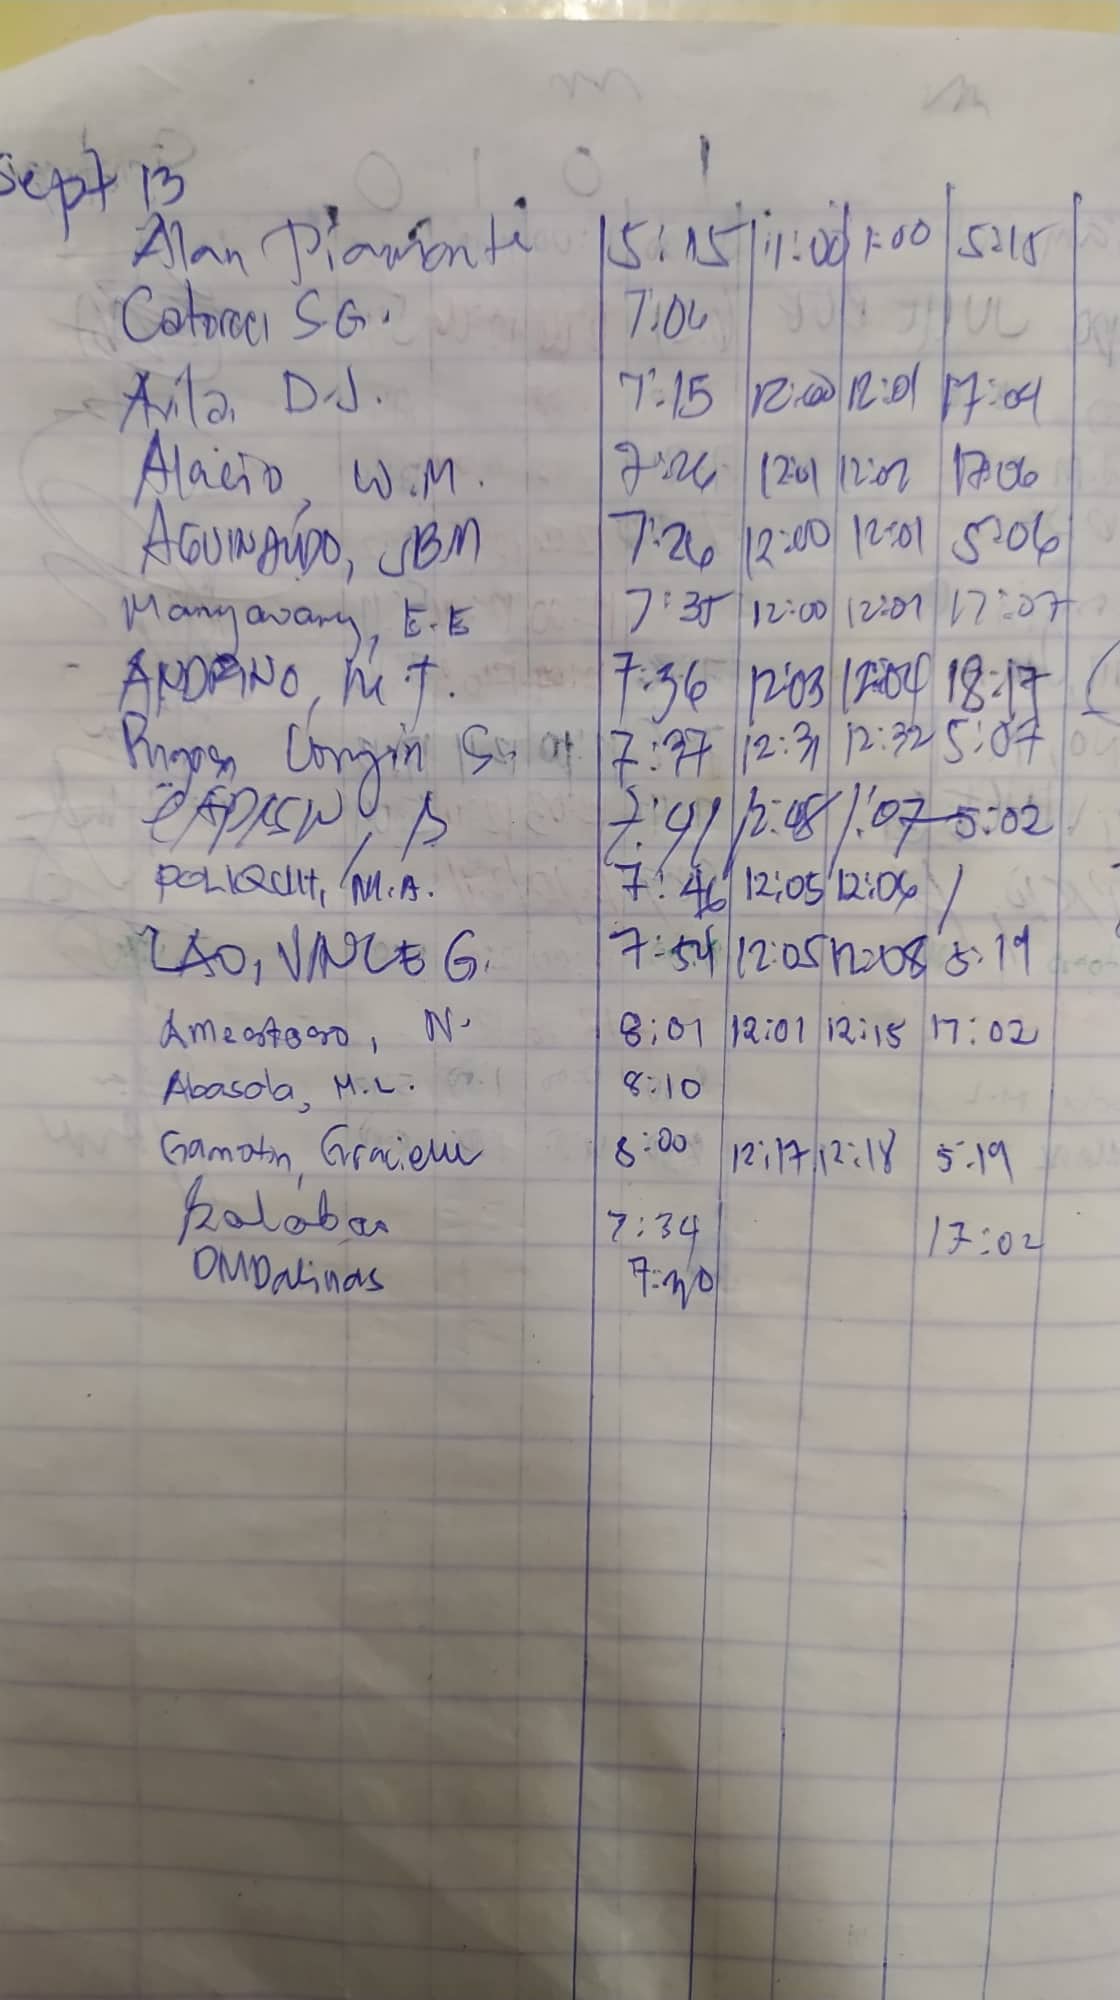 Sept 13
Alan Piamonte 5:15 11:00 1:00 5:15
Catoraci S.G. 7:04
Avila, D.J. 7:15 12:00 12:01 17:04
Alacio, W.M. 7:26 12:01 12:02 17:06
AGUINALDO, JBM 7:26 12:00 12:01 5:06
Manyavany, E.E 7:35 12:00 12:01 17:07
ANDRINO, M.J. 7:36 12:03 12:04 18:17
S. 7:37 12:31 12:32 5:07
7:41 12:48 1:07 5:02
POLIQUIT, M.A. 7:46 12:05 12:06 /
LAO, VINCE G. 7:54 12:05 12:08 5:19
Amestoso, N. 8:01 12:01 12:15 17:02
Abasola, M.L. 8:10
Gamotin, Gracielle 8:00 12:17 12:18 5:19
7:34 17:02
OMDalinas 7:30